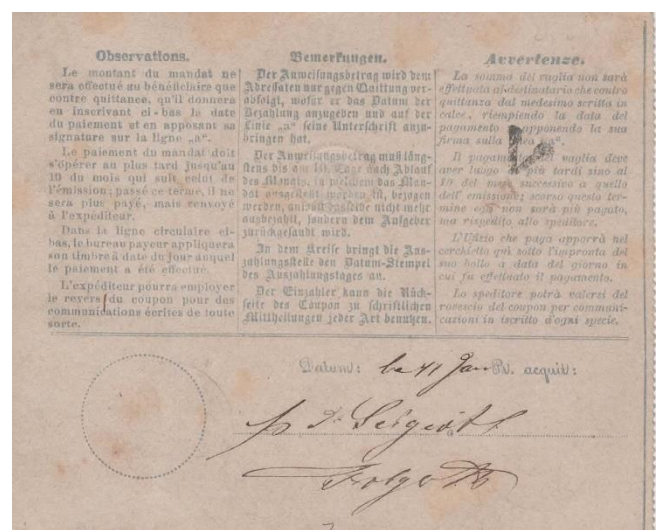 Observations.
Le montant du mandat ne
sera effectué au bénéficiaire que
contre quittance, qu'il donnera
en inscrivant ci-bas la date
du paiement et en apposant sa
signature sur la ligne „a".
Le paiement du mandat doit
s'opérer au plus tard jusqu'au
10 du mois qui suit celui de
l'émission; passé ce terme, il ne
sera plus payé, mais renvoyé
à l'expéditeur.
Dans la ligne circulaire ci-
bas, le bureau payeur appliquera
son timbre à date du jour auquel
le paiement a été effectué.
L'expéditeur pourra employer
le revers du coupon pour des
communications écrites de toute
sorte.
Bemerkungen.
Der Anweisungsbetrag wird dem
Adressaten nur gegen Quittung ver-
abfolgt, wofür er das Datum der
Bezahlung anzugeben und auf der
Linie „a" seine Unterschrift anzu-
bringen hat.
Der Anweisungsbetrag muß läng-
stens bis am 10. Tage nach Ablauf
des Monats, in welchem das Man-
dat ausgestellt worden ist, bezogen
werden, ansonst derselbe nicht mehr
ausbezahlt, sondern dem Aufgeber
zurückgesandt wird.
In dem Kreise bringt die Aus-
zahlungsstelle den Datum-Stempel
des Auszahlungstages an.
Der Einzahler kann die Rück-
seite des Coupon zu schriftlichen
Mittheilungen jeder Art benutzen.
Avvertenze.
La somma del vaglia non sarà
effettuata al destinatario che contro
quittanza dal medesimo scritta in
calce, riempiendo la data del
pagamento apponendo la sua
firma sulla linea „a".
Il pagamento del vaglia deve
aver luogo più tardi sino al
10 del mese successivo a quello
dell' emissione; scorso questo ter-
mine egli non sarà più pagato,
ma rispedito allo speditore.
L'Ufizio che paga apporrà nel
cerchietto quì sotto l'impronta del
suo bollo a data del giorno in
cui fu effettuato il pagamento.
Lo speditore potrà valersi del
rovescio del coupon per communi-
cazioni in iscritto d'ogni specie.
Datum: 11 Jan Pr. acquit: